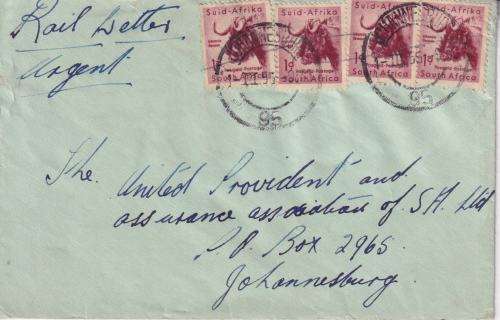 Rail Letter
Urgent
Suid-Afrika Suid-Afrika Suid-Afrika Suid-Afrika
1d 1d
South Africa South Africa South Africa
95 95
The United Provident and
assurance association of S.A. Ltd
P.O Box 2965
Johannesburg.